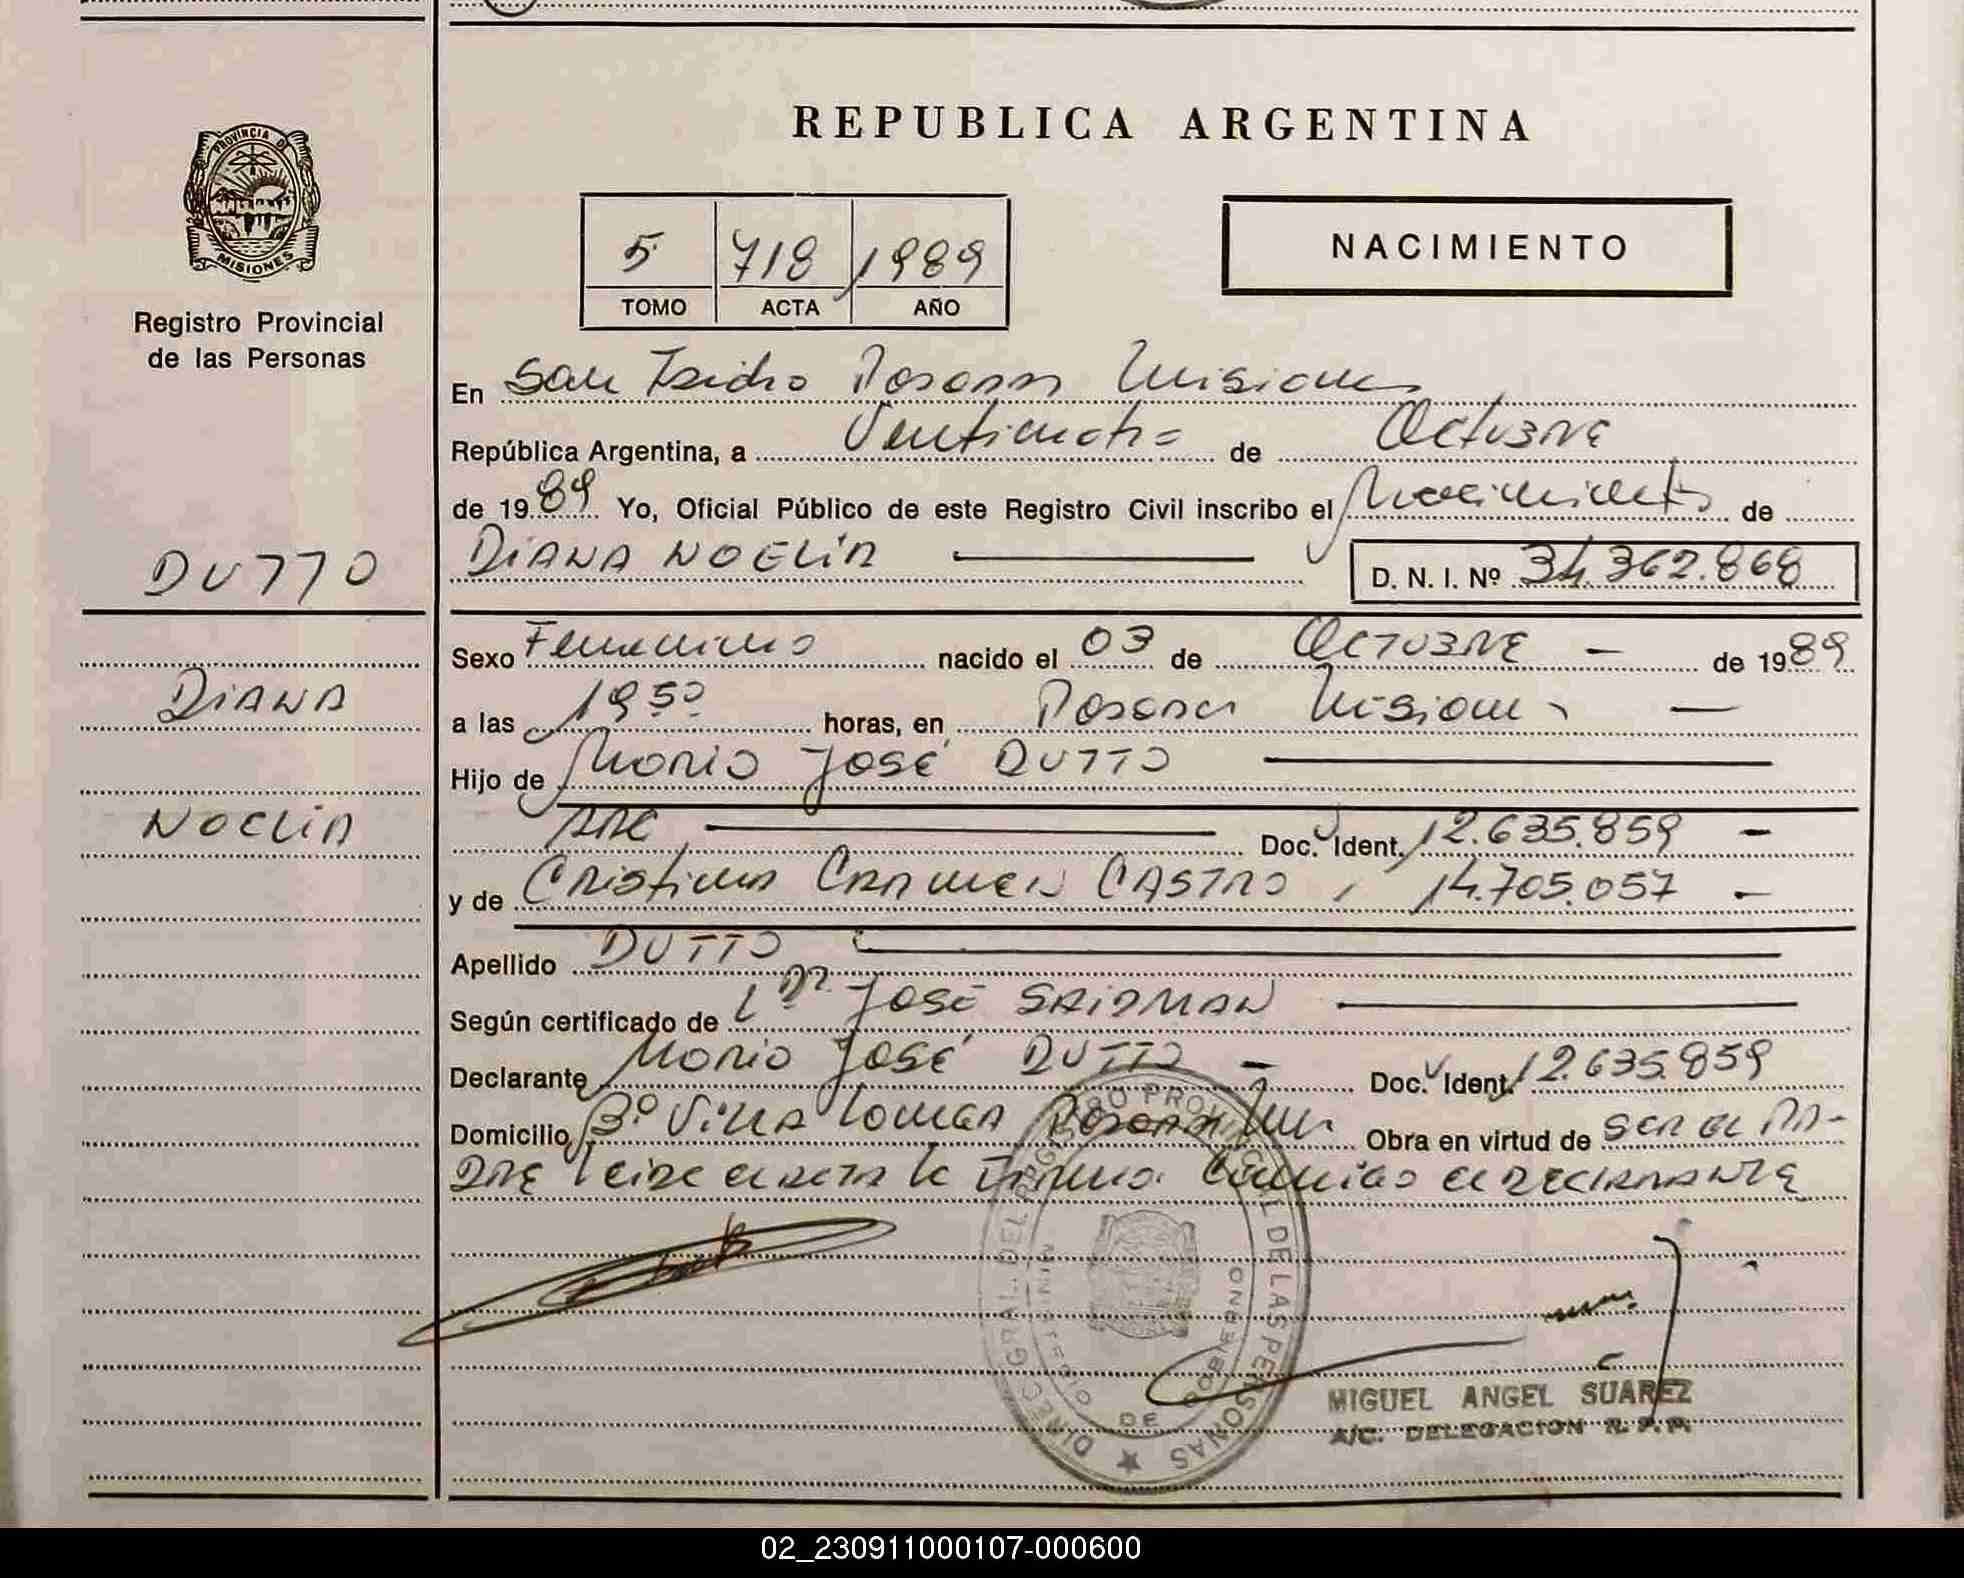 REPUBLICA ARGENTINA
PROVINCIA DE
MISIONES
Registro Provincial
de las Personas
5 718 1989
TOMO ACTA AÑO
NACIMIENTO
En San Isidro Posadas Misiones
República Argentina, a Venticuatro de Octubre
de 1989 Yo, Oficial Público de este Registro Civil inscribo el Nacimiento de
DUTTO
DIANA NOELIA D. N. I. Nº 34.362.868
Sexo Femenino nacido el 03 de OCTUBRE — de 1989
DIANA
a las 19 50 horas, en Posadas Misiones —
Hijo de Mario José DUTTO
NOELIA
Doc. Ident. 12.635.859 —
y de Cristina CARMEN CASTRO , 14.705.057 —
Apellido DUTTO
Según certificado de Dr. José SAIDMAN
Declarante Mario José DUTTO — Doc. Ident. 12.635.859
Domicilio Bº Villa Posadas Obra en virtud de ser el PA-
DRE leída el acta la firma conmigo el declarante
DIREC. GRAL. DEL REGISTRO PROVINCIAL DE LAS PERSONAS
MINISTERIO DE GOBIERNO
MIGUEL ANGEL SUAREZ
A/C. DELEGACION R. P. P.
02_230911000107-000600